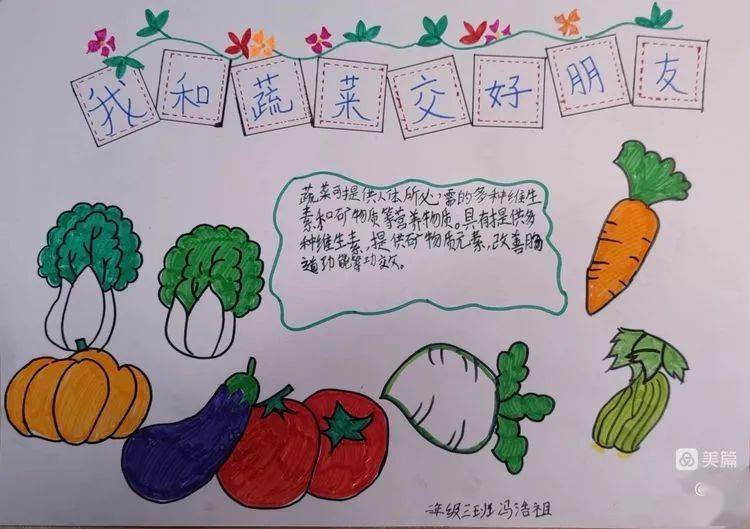 我和蔬菜交好朋友
蔬菜可提供人体所必需的多种维生
素和矿物质等营养物质。具有提供多
种维生素,提供矿物质元素,改善肠
道功能等功效。
年级三班冯浩祖
美篇